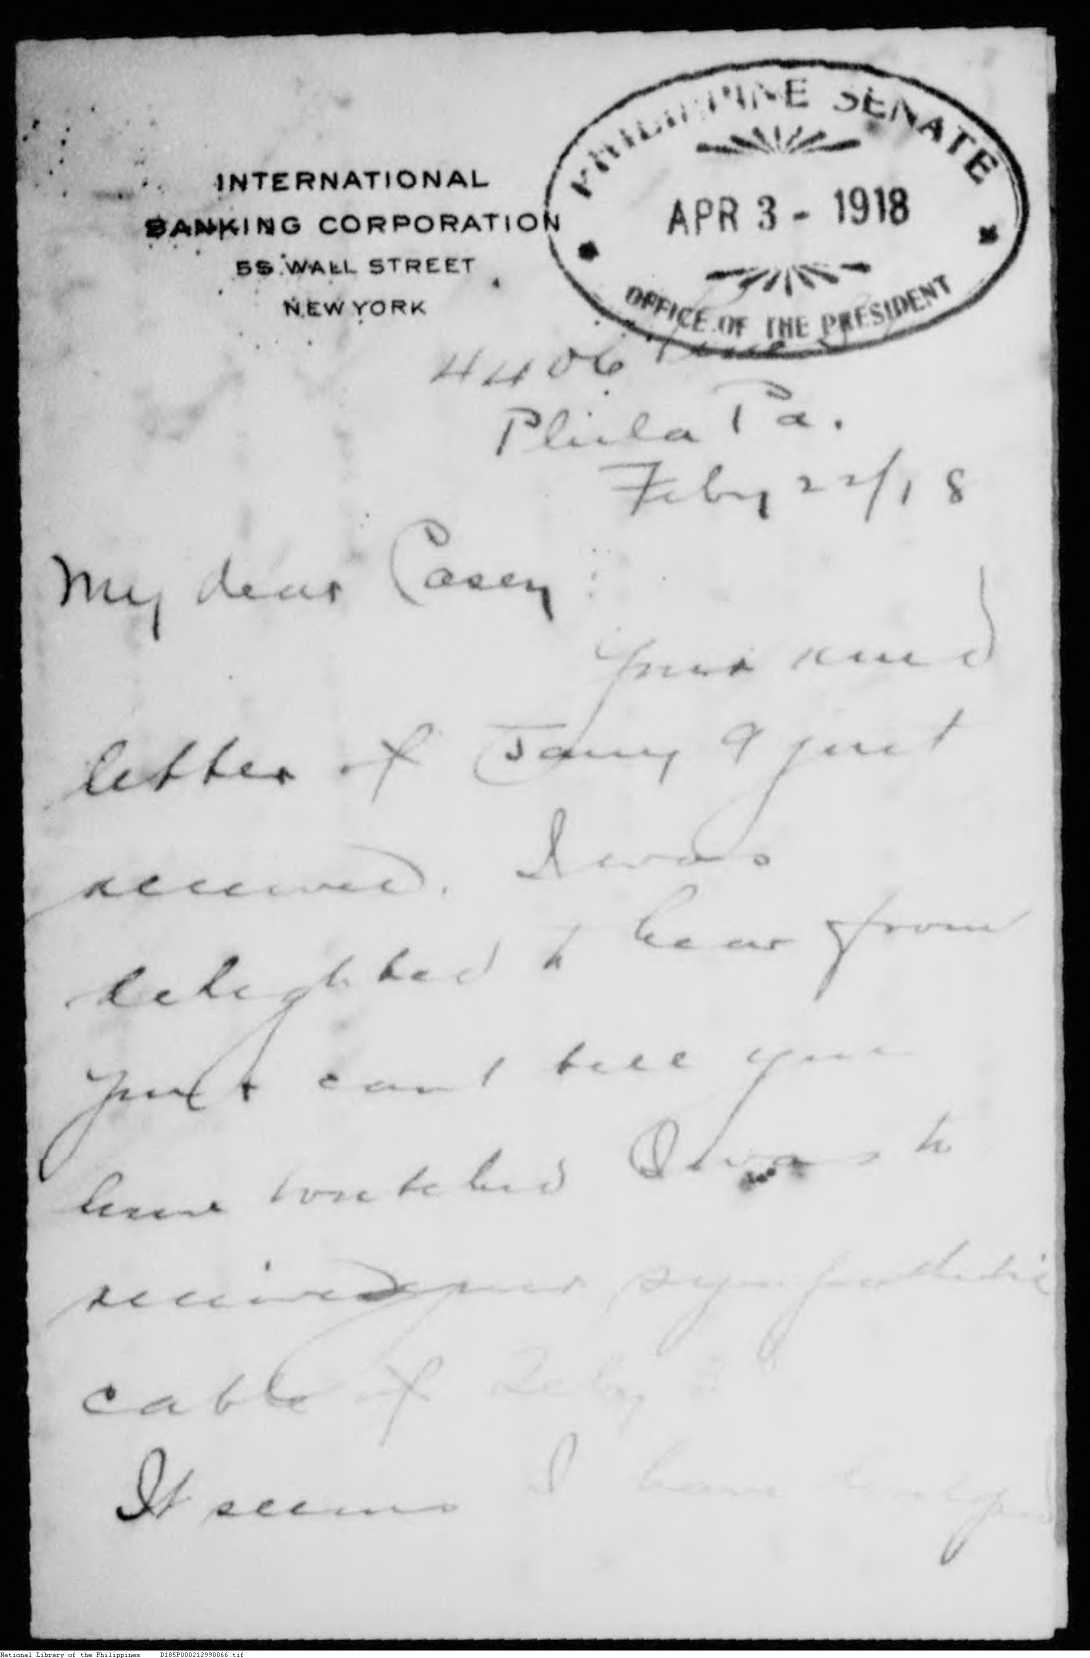 INTERNATIONAL
BANKING CORPORATION
55 WALL STREET
NEW YORK
PHILIPPINE SENATE
APR 3 - 1918
OFFICE OF THE PRESIDENT
4406 Pine
Phila Pa.
Feby 22/18
My dear Casey:
Your kind
letter of Jany 9 just
received. I was
delighted to hear from
you & can't tell you
how touched I was to
receive your sympathetic
cable of Feby
It seems I have
National Library of the Philippines D185P000212998066.tif